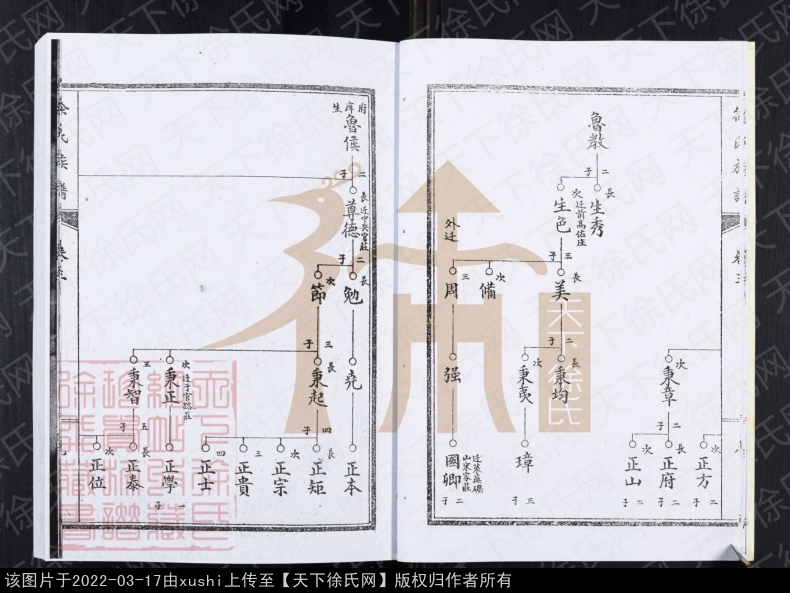 魯教
二子
長
生秀
次
迁前高佐庄
生色
三子
長
美
次
備
外迁
三
周
二子
長
秉均
次
秉夷
强
次
秉章
二子
正方
長
正府
二子
次
正山
二子
璋
三子
迁萊蕪礪
山宋家莊
國卿
二子
府庠生
魯侯
二子
長
尊德
二子
長
勉
次
節
堯
三子
長
秉起
次
迁于官路莊
秉正
秉智
正本
四子
長
正矩
次
正宗
三
正貴
四
正士
正學
一子
五子
長
正泰
次
正位
徐氏族譜
卷三
天下徐氏
天下徐氏网
该图片于2022-03-17由xushi上传至【天下徐氏网】版权归作者所有